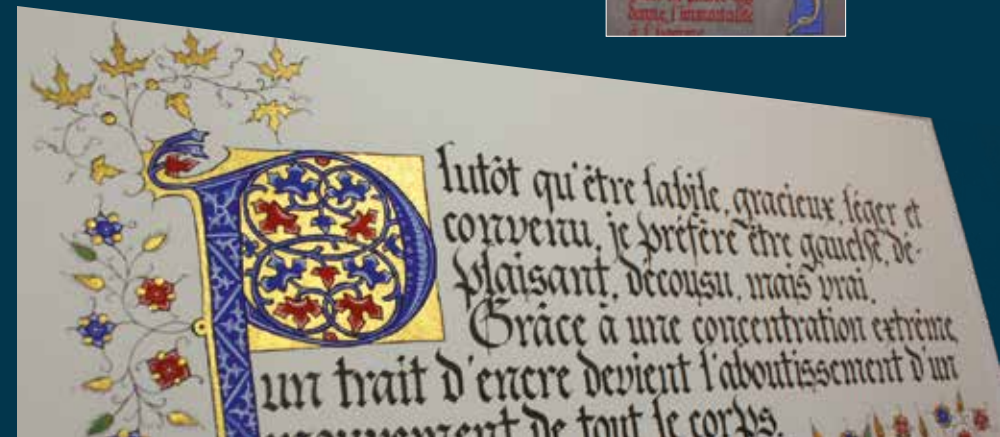 donne, l'immortalité
à l'homme
Plutôt qu'être labile, gracieux, léger et
convenu, je préfère être gauche, dé-
plaisant, décousu, mais vrai.
Grâce à une concentration extrême,
un trait d'encre devient l'aboutissement d'un
mouvement de tout le corps.